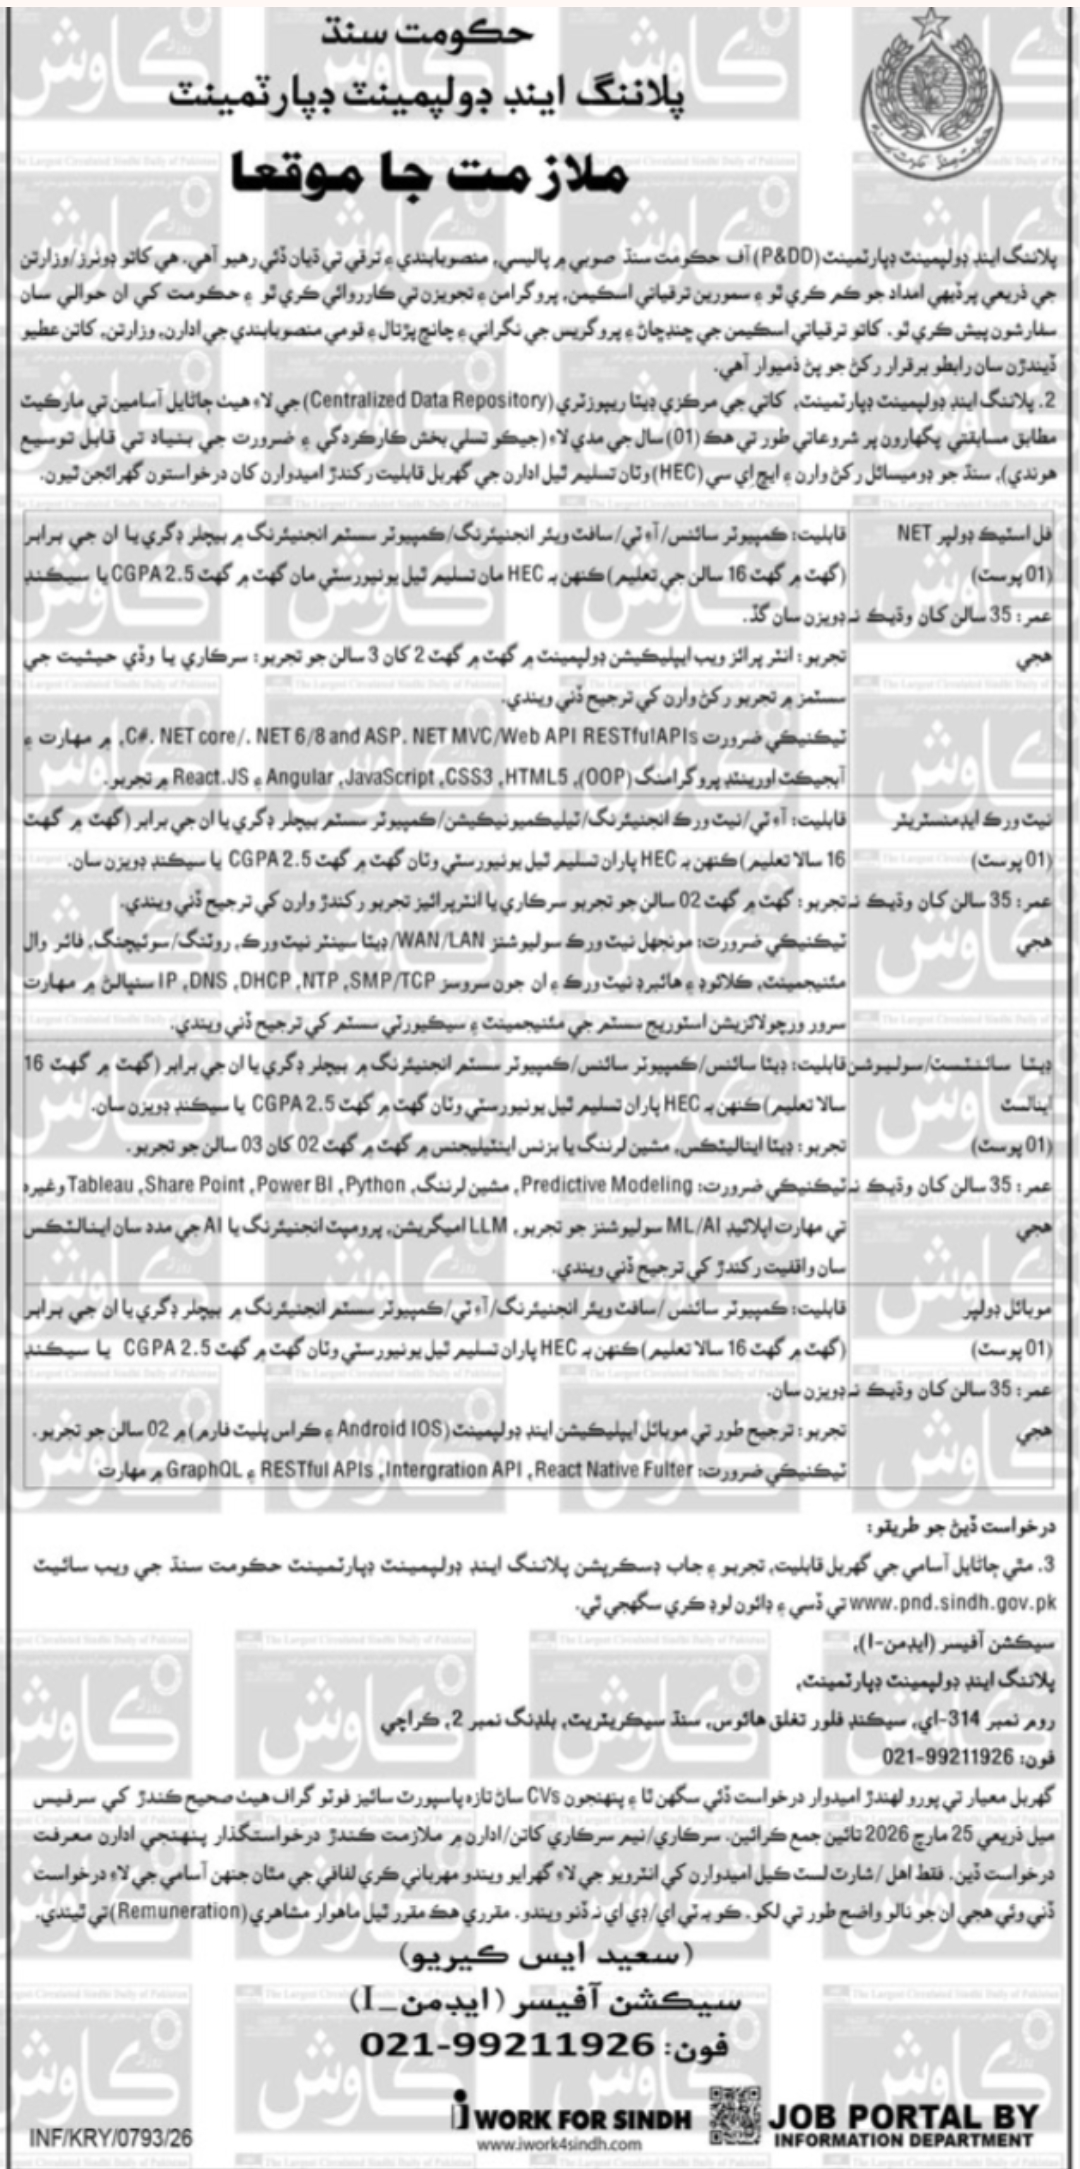 حڪومت سنڌ
پلاننگ اينڊ ڊولپمينٽ ڊپارٽمينٽ
ملازمت جا موقعا
پلاننگ اينڊ ڊولپمينٽ ڊپارٽمينٽ (P&DD) آف حڪومت سنڌ صوبي ۾ پاليسي، منصوبابندي ۽ ترقي تي ڌيان ڏئي رهيو آهي. هي کاتو ڊونرز/وزارتن
جي ذريعي پرڏيهي امداد جو ڪم ڪري ٿو ۽ سمورين ترقياتي اسڪيمن، پروگرامن ۽ تجويزن تي ڪارروائي ڪري ٿو ۽ حڪومت کي ان حوالي سان
سفارشون پيش ڪري ٿو. کاتو ترقياتي اسڪيمن جي ڇنڊڇاڻ ۽ پروگريس جي نگراني ۽ جانچ پڙتال ۽ قومي منصوبابندي جي ادارن، وزارتن، کاتن عطيو
ڏيندڙن سان رابطو برقرار رکڻ جو پڻ ذميوار آهي.
2. پلاننگ اينڊ ڊولپمينٽ ڊپارٽمينٽ، کاتي جي مرڪزي ڊيٽا ريپوزٽري (Centralized Data Repository) جي لاءِ هيٺ ڄاڻايل آسامين تي مارڪيٽ
مطابق مسابقتي پگهارون پر شروعاتي طور تي هڪ (01) سال جي مدي لاءِ (جيڪو تسلي بخش ڪارڪردگي ۽ ضرورت جي بنياد تي قابل توسيع
هوندي)، سنڌ جو ڊوميسائل رکڻ وارن ۽ ايڇ اي سي (HEC) وٽان تسليم ٿيل ادارن جي گهربل قابليت رکندڙ اميدوارن کان درخواستون گهرائجن ٿيون.
فل اسٽيڪ ڊولپر NET
(01 پوسٽ)
عمر: 35 سالن کان وڌيڪ نہ
هجي
قابليت: ڪمپيوٽر سائنس/آءِ ٽي/سافٽ ويئر انجنيئرنگ/ڪمپيوٽر سسٽم انجنيئرنگ ۾ بيچلر ڊگري يا ان جي برابر
(گهٽ ۾ گهٽ 16 سالن جي تعليم) ڪنهن بہ HEC مان تسليم ٿيل يونيورسٽي مان گهٽ ۾ گهٽ CGPA 2.5 يا سيڪنڊ
ڊويزن سان گڏ.
تجربو: انٽر پرائز ويب ايپليڪيشن ڊولپمينٽ ۾ گهٽ ۾ گهٽ 2 کان 3 سالن جو تجربو: سرڪاري يا وڏي حيثيت جي
سسٽمز ۾ تجربو رکڻ وارن کي ترجيح ڏني ويندي.
ٽيڪنيڪي ضرورت C#. NET core/. NET 6/8 and ASP. NET MVC/Web API RESTfulAPIs, ۾ مهارت ۽
آبجيڪٽ اورينٽڊ پروگرامنگ (OOP)، HTML5، CSS3، JavaScript، Angular ۽ React.JS ۾ تجربو.
نيٽ ورڪ ايڊمنسٽريٽر
(01 پوسٽ)
عمر: 35 سالن کان وڌيڪ نہ
هجي
قابليت: آءِ ٽي/نيٽ ورڪ انجنيئرنگ/ٽيليڪميونيڪيشن/ڪمپيوٽر سسٽم بيچلر ڊگري يا ان جي برابر (گهٽ ۾ گهٽ
16 سالا تعليم) ڪنهن بہ HEC پاران تسليم ٿيل يونيورسٽي وٽان گهٽ ۾ گهٽ CGPA 2.5 يا سيڪنڊ ڊويزن سان.
تجربو: گهٽ ۾ گهٽ 02 سالن جو تجربو سرڪاري يا انٽرپرائيز تجربو رکندڙ وارن کي ترجيح ڏني ويندي.
ٽيڪنيڪي ضرورت: مونجهل نيٽ ورڪ سوليوشنز WAN/LAN/ڊيٽا سينٽر نيٽ ورڪ، روٽنگ/سوئيچنگ، فائر وال
مئنيجمينٽ، ڪلائوڊ ۽ هائبرڊ نيٽ ورڪ ۽ ان جون سروسز IP، DNS، DHCP، NTP، SMP/TCP سنڀالڻ ۾ مهارت
سرور ورچولائزيشن اسٽوريج سسٽم جي مئنيجمينٽ ۽ سيڪيورٽي سسٽم کي ترجيح ڏني ويندي.
ڊيٽا سائنٽسٽ/سوليوشن
اينالسٽ
(01 پوسٽ)
عمر: 35 سالن کان وڌيڪ نہ
هجي
قابليت: ڊيٽا سائنس/ڪمپيوٽر سائنس/ڪمپيوٽر سسٽم انجنيئرنگ ۾ بيچلر ڊگري يا ان جي برابر (گهٽ ۾ گهٽ 16
سالا تعليم) ڪنهن بہ HEC پاران تسليم ٿيل يونيورسٽي وٽان گهٽ ۾ گهٽ CGPA 2.5 يا سيڪنڊ ڊويزن سان.
تجربو: ڊيٽا اينالیٽڪس، مشين لرننگ يا بزنس اينٽيليجنس ۾ گهٽ ۾ گهٽ 02 کان 03 سالن جو تجربو.
ٽيڪنيڪي ضرورت: Predictive Modeling، مشين لرننگ، Python، Power BI، Share Point، Tableau وغيره
تي مهارت اپلائيڊ ML/AI سوليوشنز جو تجربو، LLM اميگريشن، پرومپٽ انجنيئرنگ يا AI جي مدد سان اينالٽڪس
سان واقفيت رکندڙ کي ترجيح ڏني ويندي.
موبائل ڊولپر
(01 پوسٽ)
عمر: 35 سالن کان وڌيڪ نہ
هجي
قابليت: ڪمپيوٽر سائنس/سافٽ ويئر انجنيئرنگ/آءِ ٽي/ڪمپيوٽر سسٽم انجنيئرنگ ۾ بيچلر ڊگري يا ان جي برابر
(گهٽ ۾ گهٽ 16 سالا تعليم) ڪنهن بہ HEC پاران تسليم ٿيل يونيورسٽي وٽان گهٽ ۾ گهٽ CGPA 2.5 يا سيڪنڊ
ڊويزن سان.
تجربو: ترجيح طور تي موبائل ايپليڪيشن اينڊ ڊولپمينٽ (Android IOS ۽ ڪراس پليٽ فارم) ۾ 02 سالن جو تجربو.
ٽيڪنيڪي ضرورت: React Native Fulter، Intergration API، RESTful APIs ۽ GraphQL ۾ مهارت
درخواست ڏيڻ جو طريقو:
3. مٿي ڄاڻايل آسامي جي گهربل قابليت، تجربو ۽ جاب ڊسڪرپشن پلاننگ اينڊ ڊولپمينٽ ڊپارٽمينٽ حڪومت سنڌ جي ويب سائيٽ
www.pnd.sindh.gov.pk تي ڏسي ۽ ڊائون لوڊ ڪري سگهجي ٿي.
سيڪشن آفيسر (ايڊمن-I)،
پلاننگ اينڊ ڊولپمينٽ ڊپارٽمينٽ،
روم نمبر 314-اي، سيڪنڊ فلور تغلق هائوس، سنڌ سيڪريٽريٽ، بلڊنگ نمبر 2، ڪراچي
فون: 021-99211926
گهربل معيار تي پورو لهندڙ اميدوار درخواست ڏئي سگهن ٿا ۽ پنهنجون CVs ساڻ تازه پاسپورٽ سائيز فوٽو گراف هيٺ صحيح ڪندڙ کي سرفيس
ميل ذريعي 25 مارچ 2026 تائين جمع ڪرائين. سرڪاري/نيم سرڪاري کاتن/ادارن ۾ ملازمت ڪندڙ درخواستگذار پنهنجي ادارن معرفت
درخواست ڏين. فقط اهل/شارٽ لسٽ ڪيل اميدوارن کي انٽرويو جي لاءِ گهرايو ويندو مهرباني ڪري لفافي جي مٿان جنهن آسامي جي لاءِ درخواست
ڏني وئي هجي ان جو نالو واضح طور تي لکو. ڪو بہ ٽي اي/ڊي اي نہ ڏنو ويندو. مقرري هڪ مقرر ٿيل ماهوار مشاهري (Remuneration) تي ٿيندي.
(سعيد ايس ڪيريو)
سيڪشن آفيسر (ايڊمن_I)
فون: 021-99211926
INF/KRY/0793/26
i WORK FOR SINDH
www.iwork4sindh.com
JOB PORTAL BY
INFORMATION DEPARTMENT